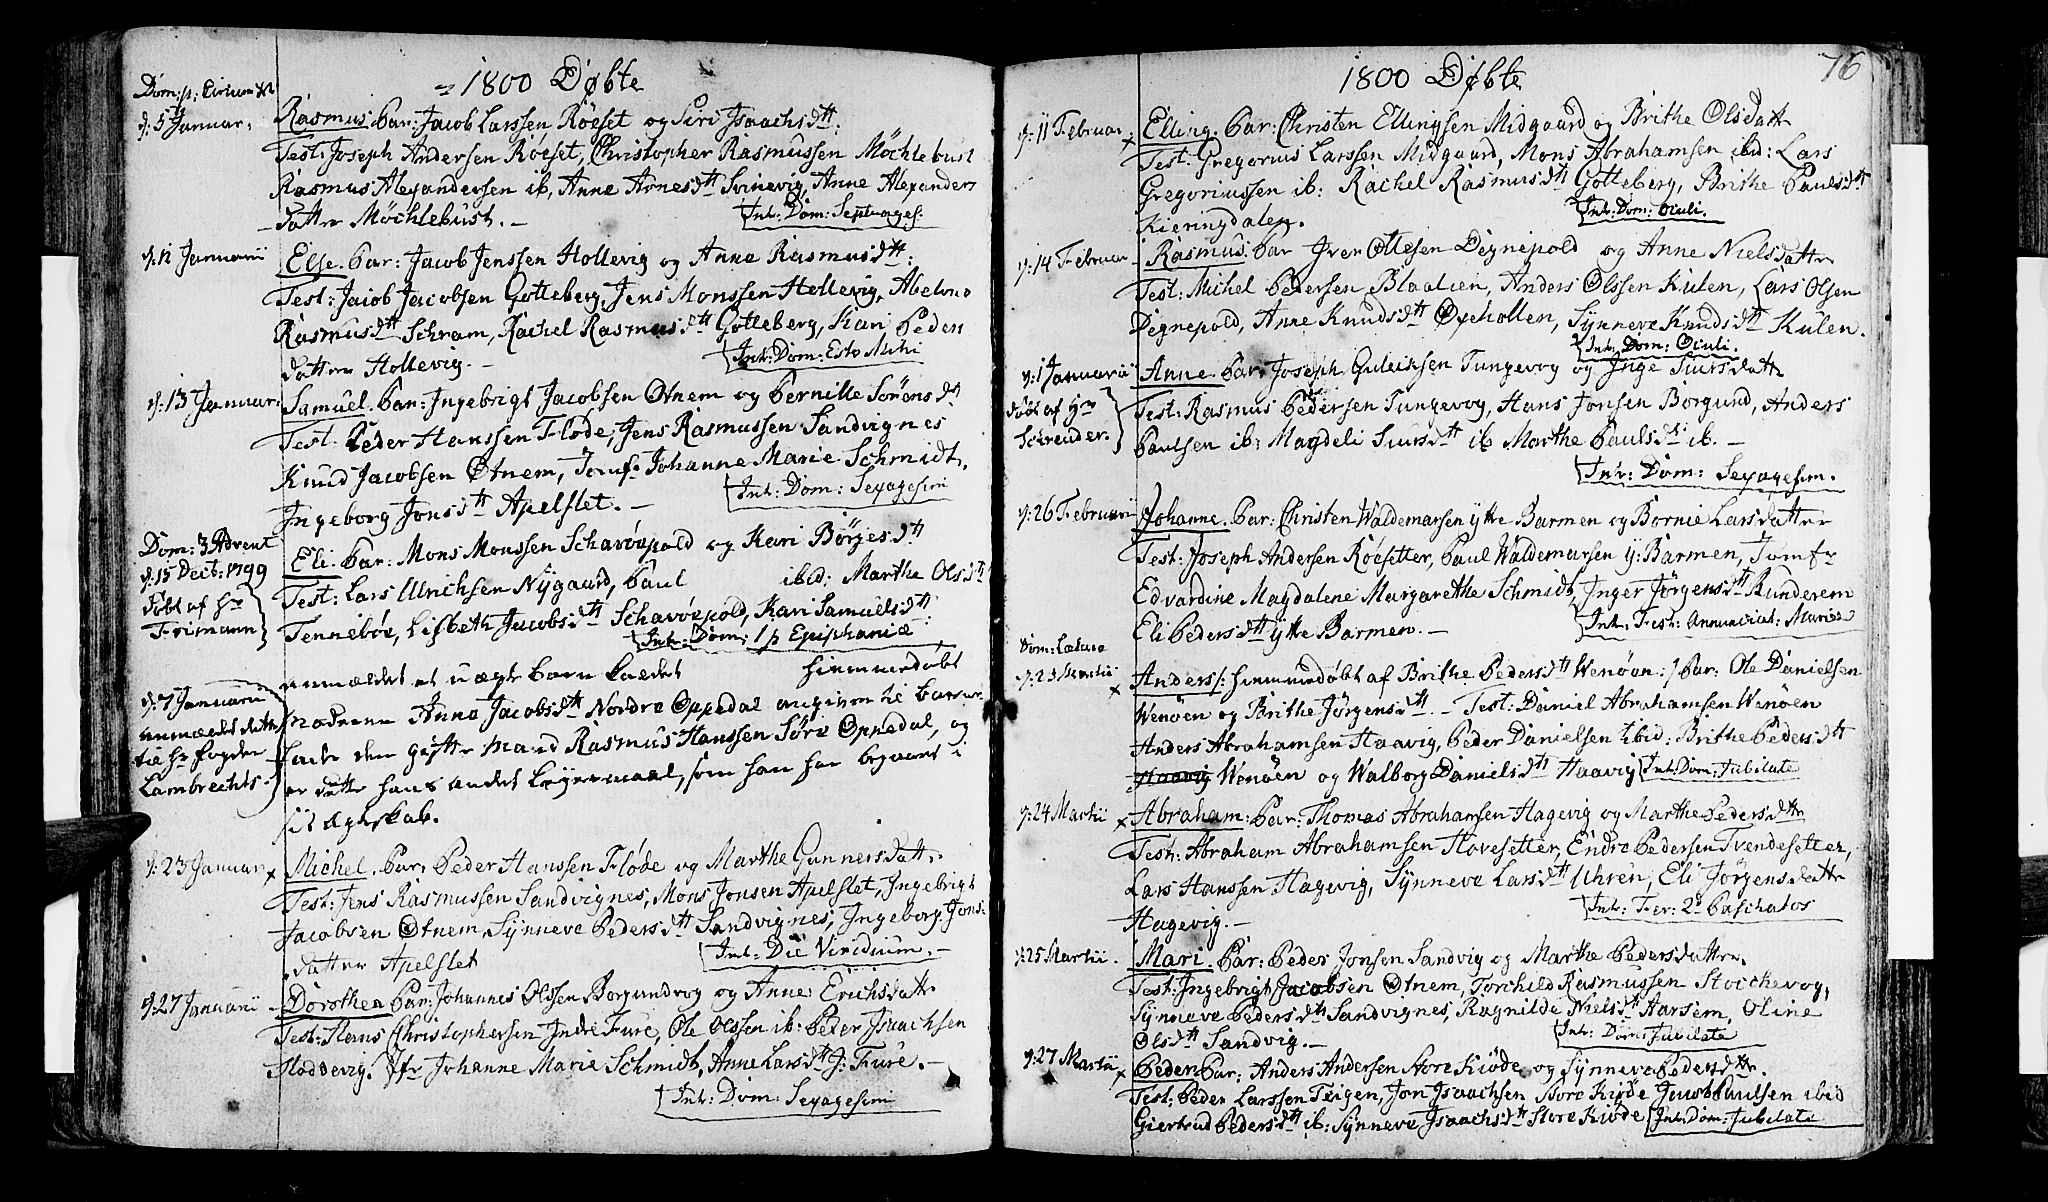 1800 Døbte
Dom: p: Circumc:
d: 5 Januar.
Rasmus. Par: Jacob Larssen Röeset og Siri Isaachsdtt:
Test: Joseph Andersen Röeset, Christopher Rasmussen Möchlebust
Rasmus Alexandersen ib, Anne Arnesdtt Svinevig, Anne Alexanders
datter Möchlebust.
Int: Dom: Septuages:
d: 11 Januarii
Else. Par: Jacob Jenssen Hollevig og Anne Rasmusdtt:
Test: Jacob Jacobsen Gotteberg, Jens Monssen Hollevig, Abelone
Rasmusdtt Schram, Rachel Rasmusdtt Gotteberg, Kari Peders
datter Hollevig. -
Int: Dom: Esto Mihi
d: 13 Januar.
Samuel. Par: Ingebrigt Jacobsen Otnem og Pernille Sörensdtt
Test. Peder Hanssen Flöde, Jens Rasmussen Sandvignes
Knud Jacobsen Otnem, Jomfr Johanne Marie Schmidt,
Ingeborg Jonsdtt Apelset. -
Int: Dom: Sexagesimi
Dom: 3 Advent
d: 15 Dec: 1799
döbt af Hr
Frimann
Eli. Par: Mons Monssen Schavöepold og Kari Börgesdtt
Test: Lars Ulrichsen Nygaard, Paul ibid: Marthe Olsdtt
Tenneböe, Lisbeth Jacobsdtt Schavöepold, Kari Samuelsdtt:
Int: Dom: 1 p Epiphaniæ
d: 7 Januarii
anmeldet dette
til Hr Fogden
Lambrechts.
anmeldet et uægte barn kaldet hiemmedöbt
Moderen Anna Jacobsdtt Nordre Oppedal angiven til barne-
fader den gifte Mand Rasmus Hanssen Söre Oppedal, og
er dette hans andet Leyermaal, som han har begaaet i
sit Ægteskab.
d: 23 Januar
Michel. Par: Peder Hanssen Flöde og Marthe Gunnersdatter
Test: Jens Rasmussen Sandvignes, Mons Jonsen Apelset, Ingebrigt
Jacobsen Otnem, Synneve Pedersdtt Sandvignes, Ingeborg Jons
datter Apelset
Int: Die Viridium. -
d: 27 Januarii
Dorothea Par: Johannes Olssen Borgundvog og Anne Erichsdatter
Test: Hans Christophersen Indre Fure, Ole Olssen ib: Peder Isaachsen
Floddevig. Jfr Johanne Marie Schmidt, Anne Larsdtt J: Fure. -
Int: Dom: Sexagesimi
1800 Døbte
76
d: 11 Februar
Elling. Par: Christen Ellingsen Midgaard og Brithe Olsdatter
Test: Gregorius Larssen Midgaard, Mons Abrahamsen ibid: Lars
Gregoriussen ib: Rachel Rasmusdtt Gotteberg, Brithe Paulsdtt
Kieringdalen.
Int: Dom: Oculi.
d: 14 Februar
Rasmus. Par Iver Ottesen Degnepold og Anne Nielsdatter
Test: Michel Pedersen Blaalien, Anders Olssen Kulen, Lars Olsen
Degnepold, Anne Knudsdtt Oxehollen, Synneve Knudsdtt Kulen.
Int: Dom: Oculi.
d: 1 Januarii
döbt af Hr
Schreuder.
Anne. Par: Joseph Guleiksen Tungevog og Inge Siursdatter
Test: Rasmus Pedersen Tungevog, Hans Jonsen Borgund, Anders
Paulsen ib: Magdeli Siursdtt ib Marthe Paulsdtt ib. -
Int: Dom: Sexagesim.
d: 26 Februarii
Johanne. Par: Christen Waldemarsen ytte Barmen og Bornie Larsdatter
Test: Joseph Andersen Röesetter, Paul Waldemarsen y: Barmen, Jomfr
Edvardine Magdalene Margarethe Schmidt, Inger Jörgensdtt Runderem
Eli Pedersdtt ytte Barmen. -
Int: Fest: Annunciat: Mariæ
Dom: Lætare
d: 23 Martii
Anders /: hiemmedöbt af Brithe Pedersdtt Wenöen :/ Par: Ole Danielsen
Wenöen og Brithe Jörgensdtt. - Test: Daniel Abrahamsen Wenöen
Anders Abrahamsen Haavig, Peder Danielsen ibid: Brithe Pedersdtt
Haavig Wenöen og Walborg Danielsdtt Haavig
Int: Dom: Jubilate
d: 24 Martii
Abraham: Par: Thomas Abrahamsen Hagevig og Marthe Pedersdttr
Test: Abraham Abrahamsen Hovesetter, Endre Pedersen Tvendesetter,
Lars Hanssen Hagevig, Synneve Larsdtt Uhren, Eli Jörgensdatter
Hagevig. -
Int: Fer: 2da Paschatos
d: 25 Martii.
Mari. Par: Peder Jonsen Sandvig og Marthe Pedersdatter.
Test: Ingebrigt Jacobsen Otnem, Torchild Rasmussen Stochevog,
Synneve Pedersdtt Sandvignes, Ragnilde Nielsdtt Aarsem, Oline
Olsdtt Sandvig. -
Int: Dom: Jubilate
d: 27 Martii
Peder. Par: Anders Andersen Store Kiöde og Synneve Pedersdttr.
Test: Peder Larssen Teigen, Jon Isaachsen Store Kiöde Jacob Paulsen ibid
Giertrud Pedersdtt ib: Synneve Isaachsdtt Store Kiöde
Int: Dom: Jubilate